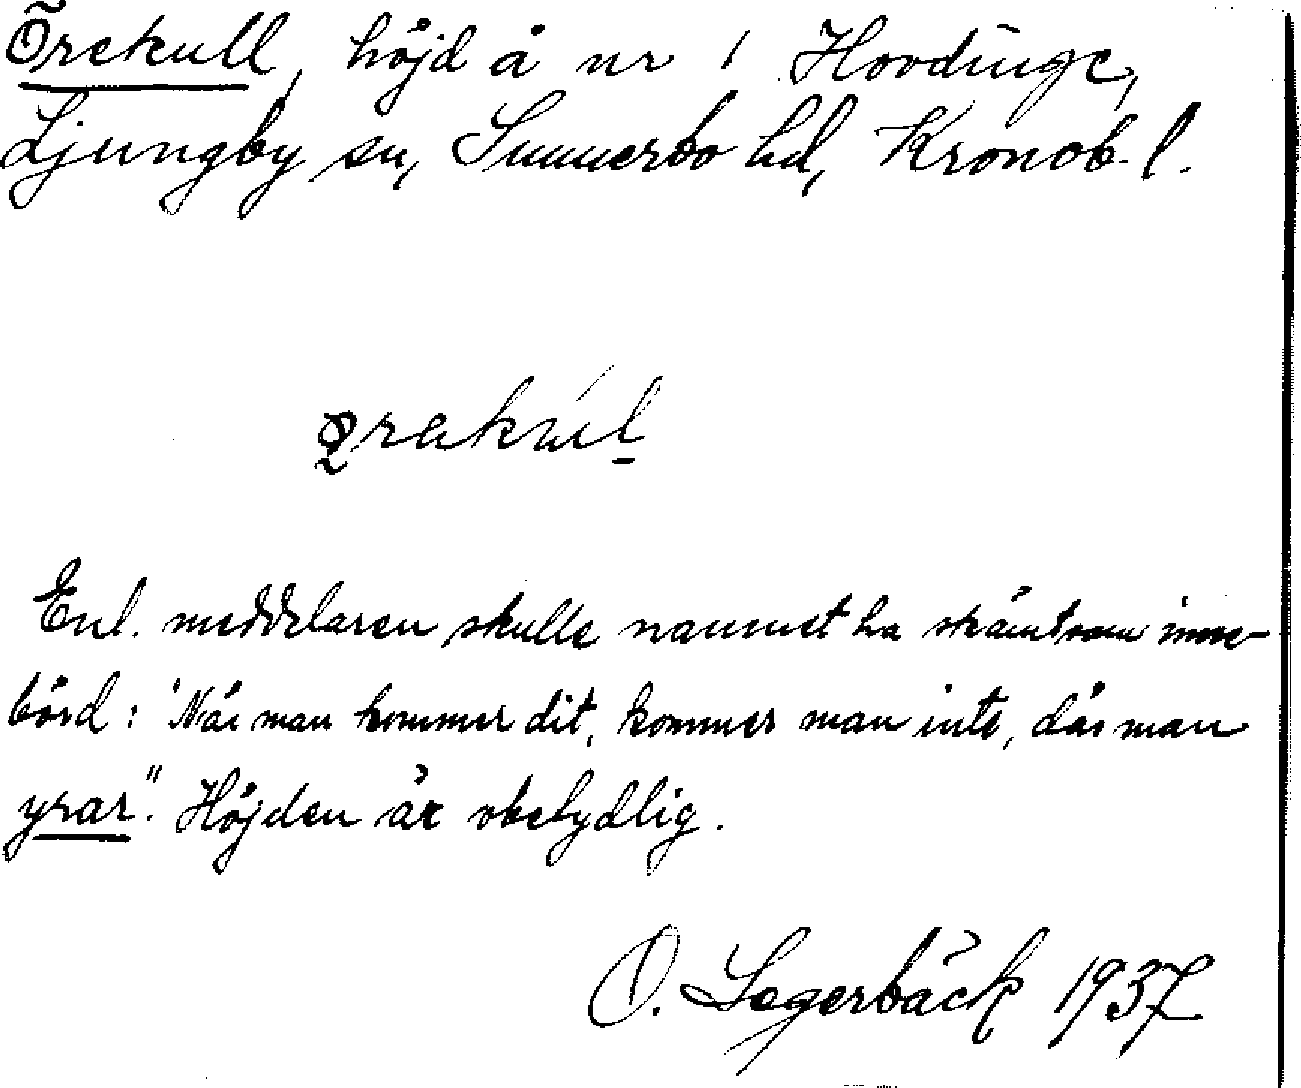 Örekull, höjd å nr 1 Hovdinge,
Ljungby sn, Sunnerbo hd, Kronob. l.
Enl. meddelaren skulle namnet ha skämtsam inne-
börd: "När man kommer dit, kommer man inte, där man
yrar". Höjden är obetydlig.
O. Segerbäck 1937